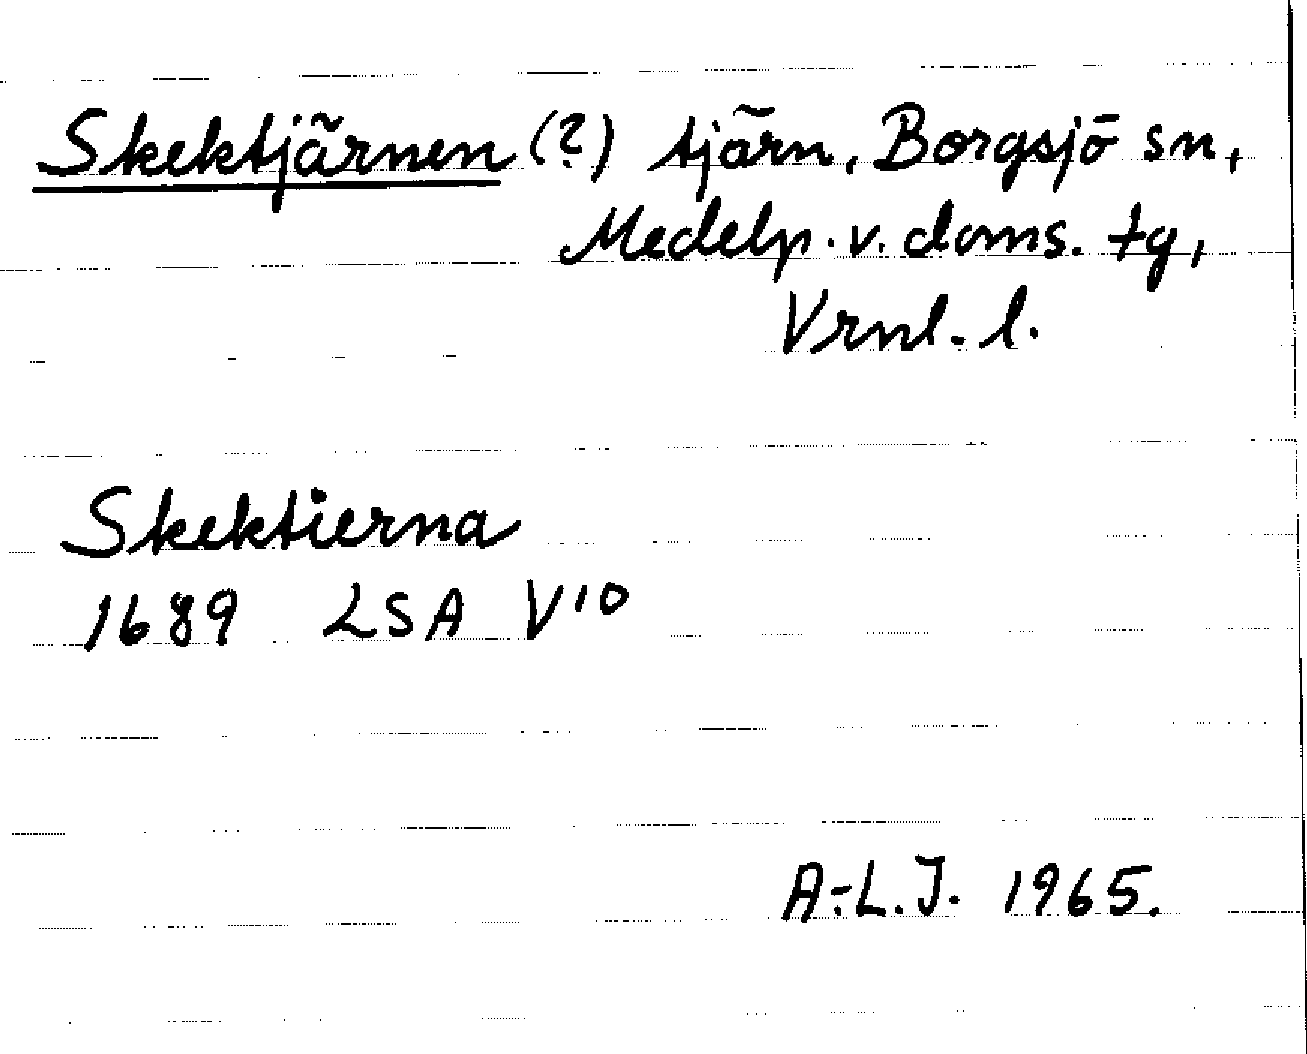 Skektjärnen (?) tjärn, Borgsjö sn,
Medelp. v. doms. tg,
Vrnl. l.
Skektierna
1689 LSA V10
A-L.J. 1965.